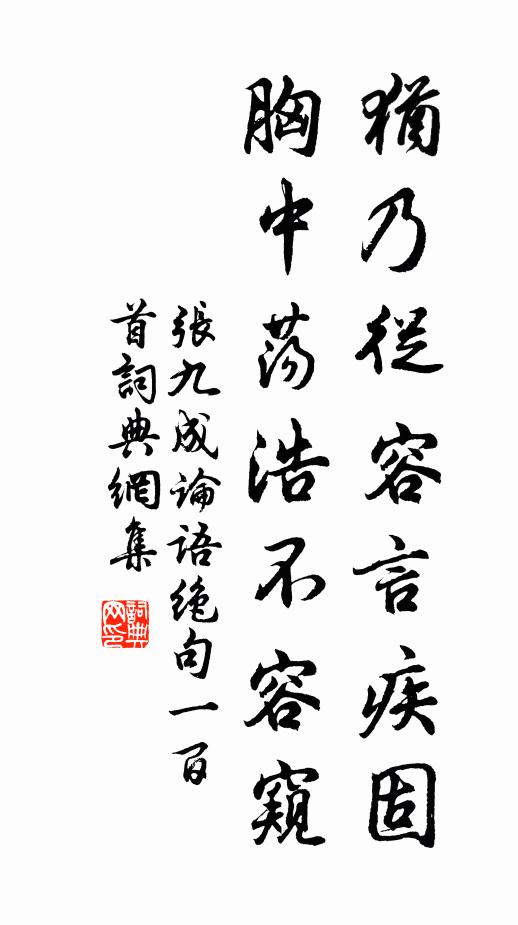 猶乃從容言疾固
胸中荡浩不容窺
張九成論語絶句一百
首詞典網集
詞典
网印